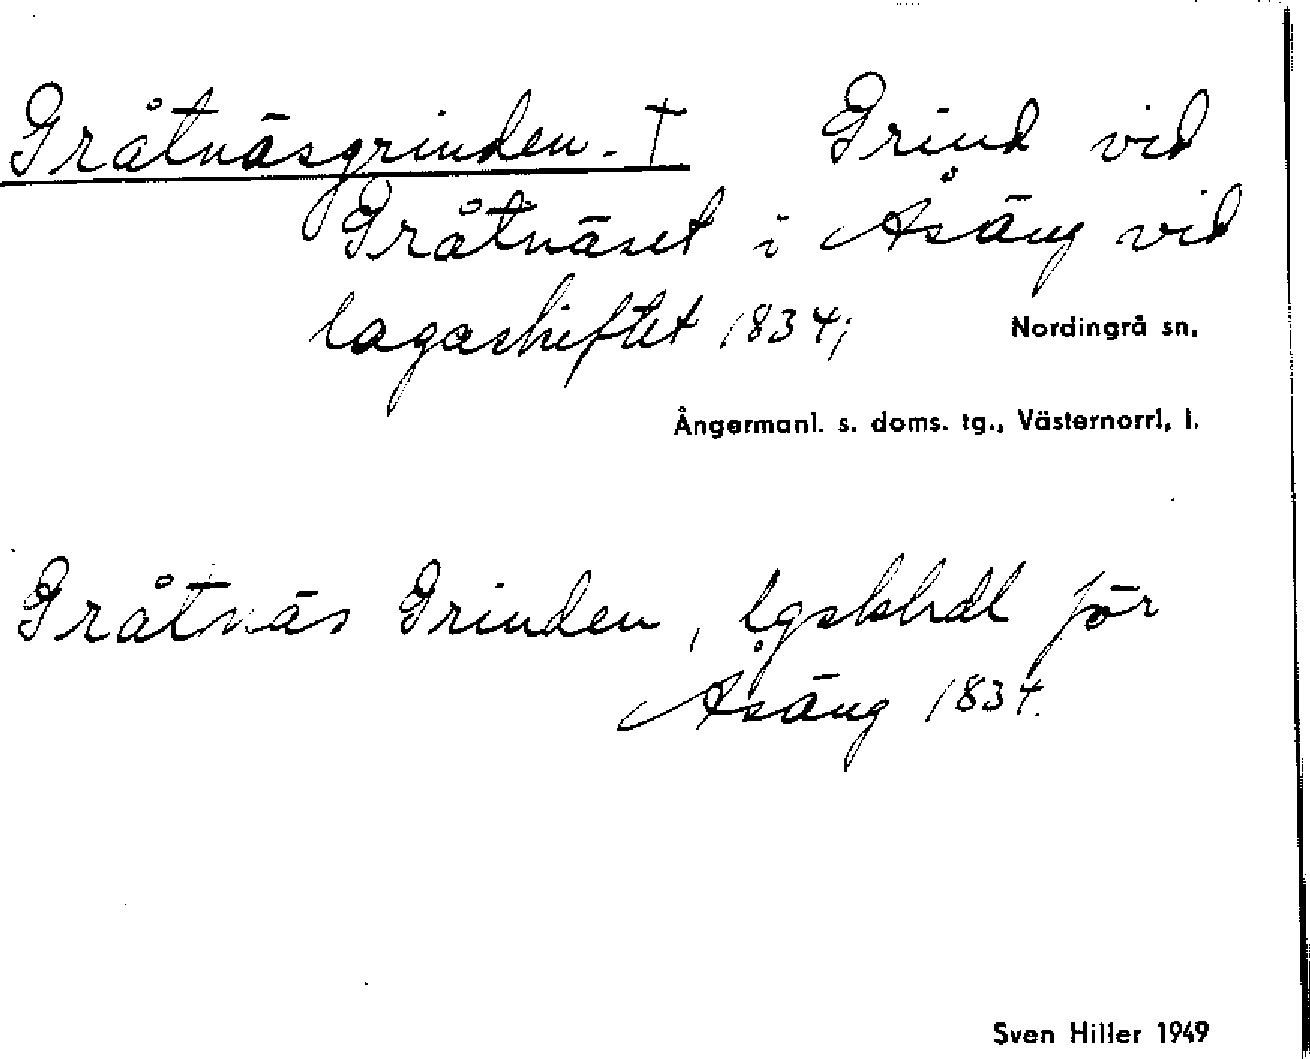 Gråtnäsgrinden. † Grind vid
Gråtnäset i Åsäng vid
lagaskiftet 1834;
Nordingrå sn.
Ångermanl. s. doms. tg., Västernorrl. l.
Gråtnäs Grinden, lgskhdl för
Åsäng 1834.
Sven Hiller 1949